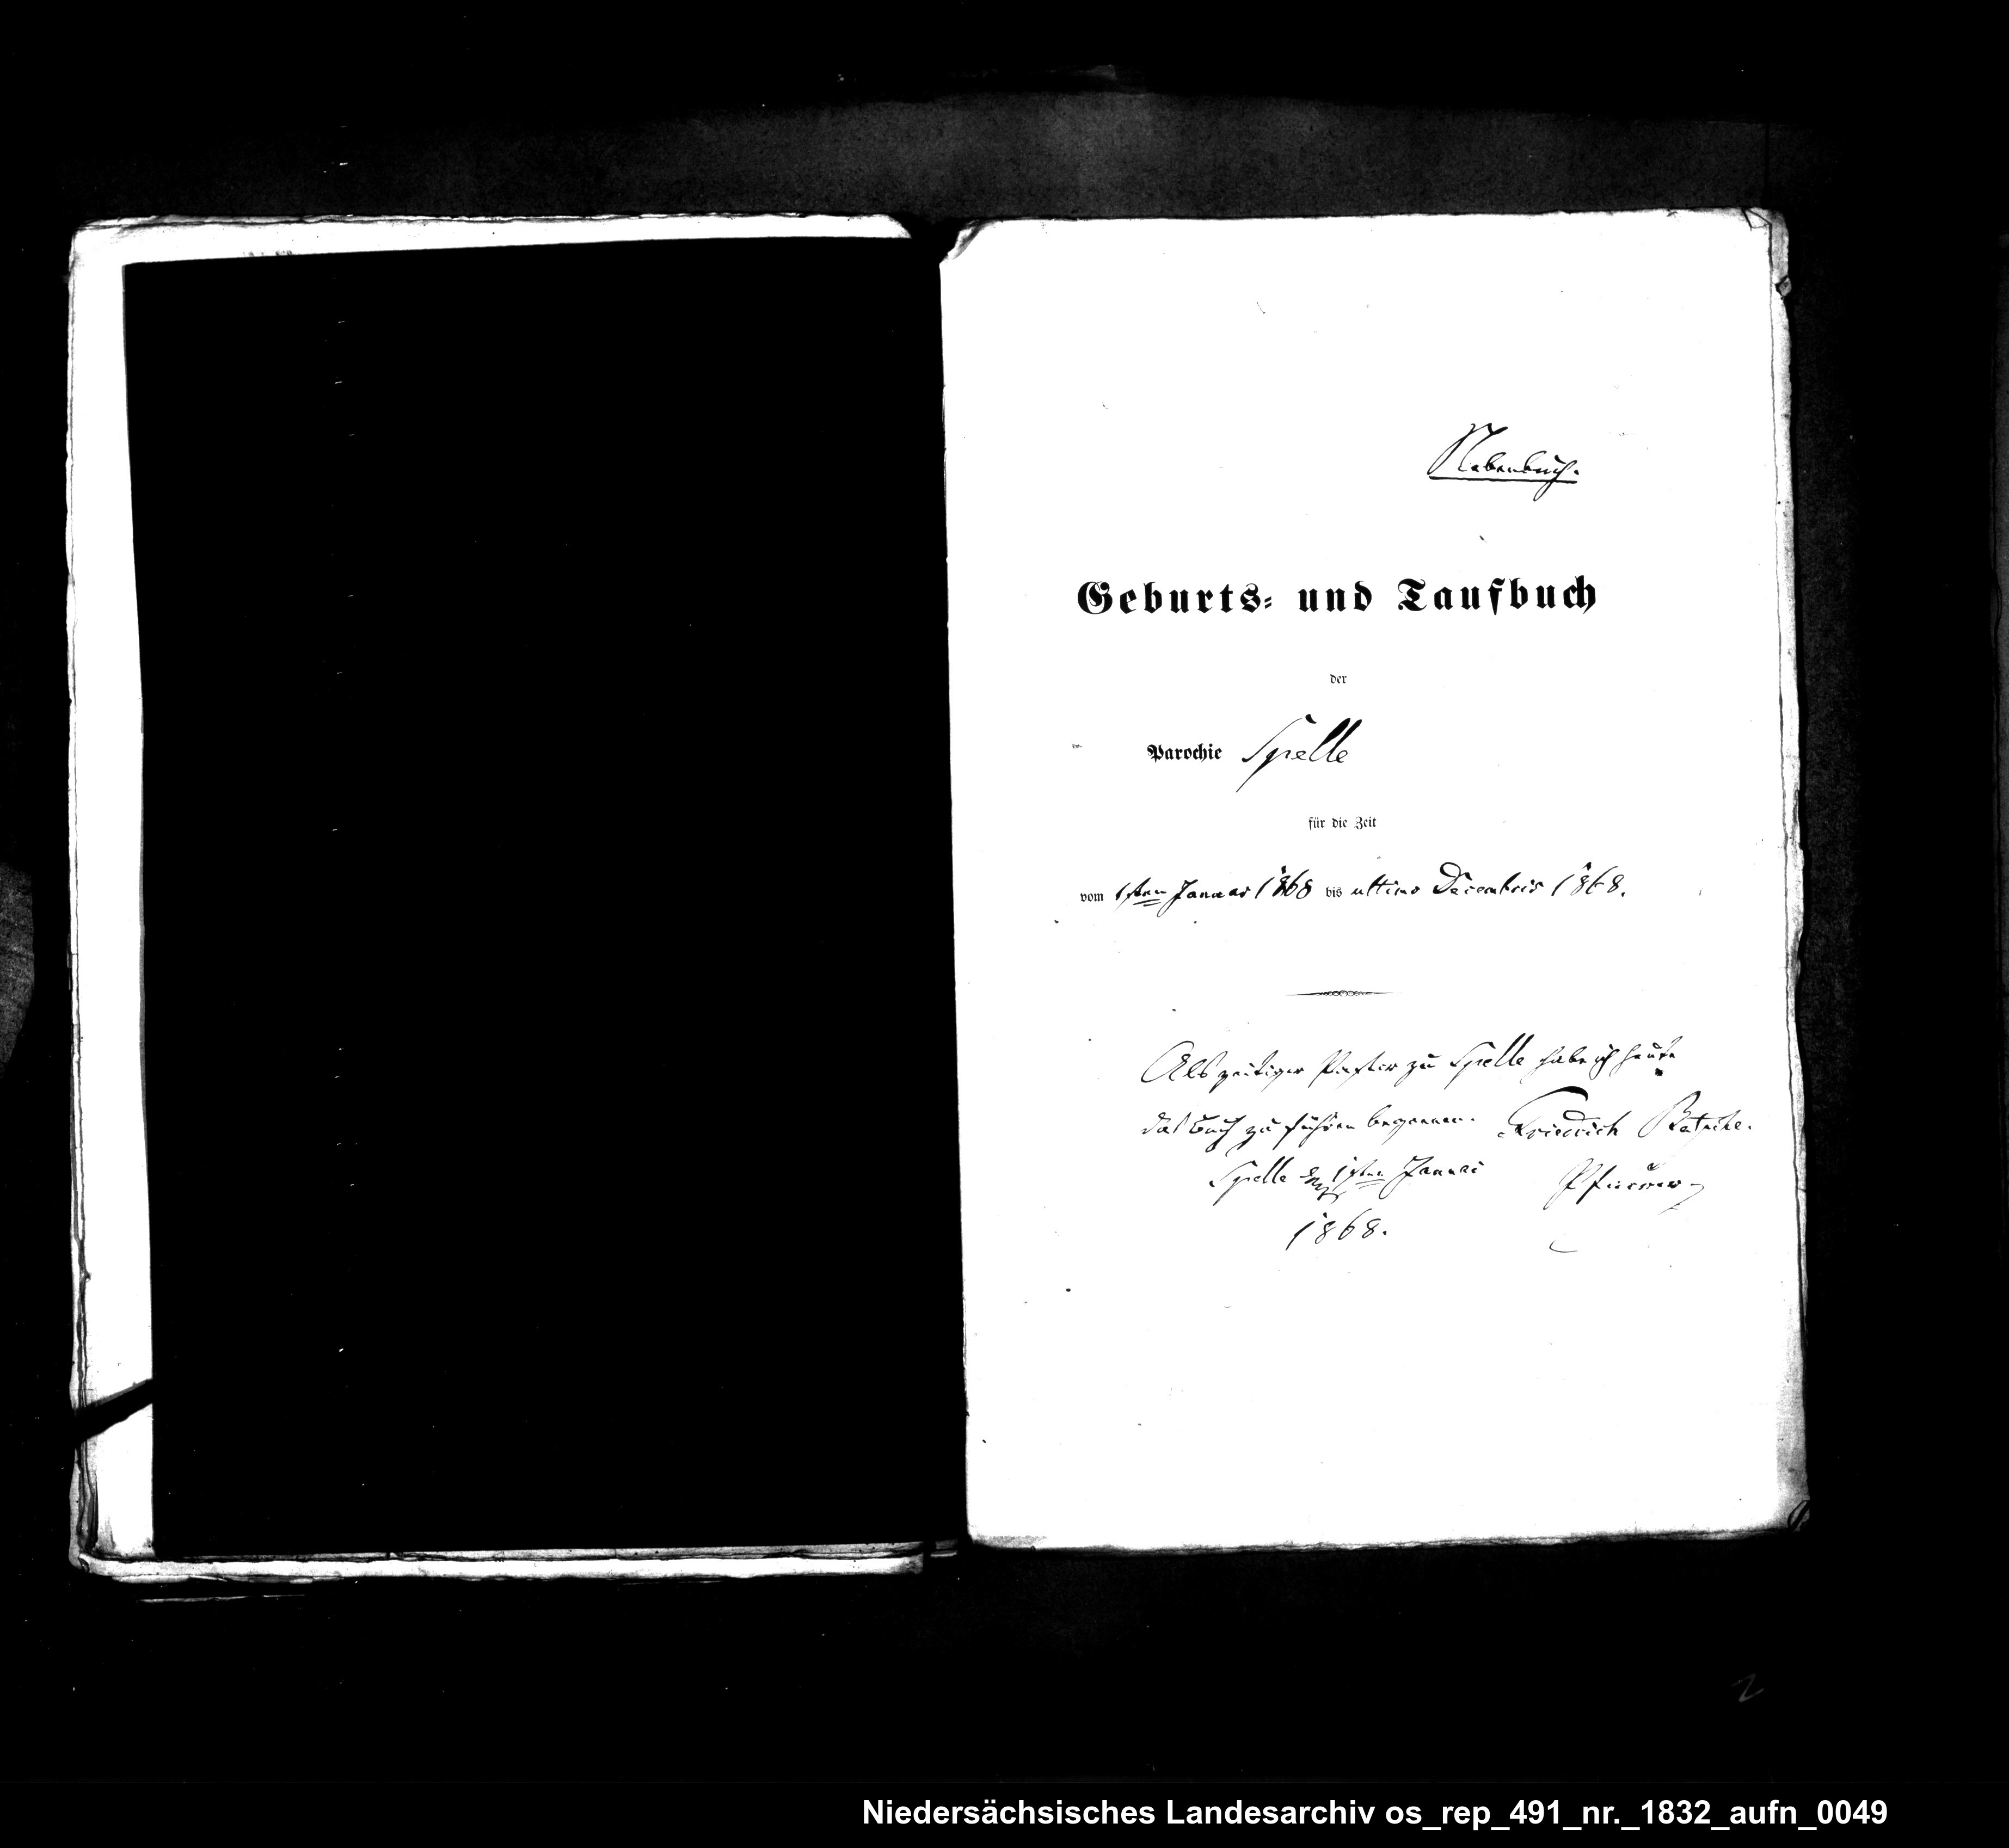 Nebenbuch.
Geburts- und Taufbuch
der
Parochie Spelle
für die Zeit
vom 1sten Januar 1868 bis ultimo Decembris 1868.
Als zeitiger Pastor zu Spelle habe ich heute
das Buch zu führen begonnen. Friedrich
Spelle den 1sten Januar Pfarrer
1868.
2
Niedersächsisches Landesarchiv os_rep_491_nr._1832_aufn_0049